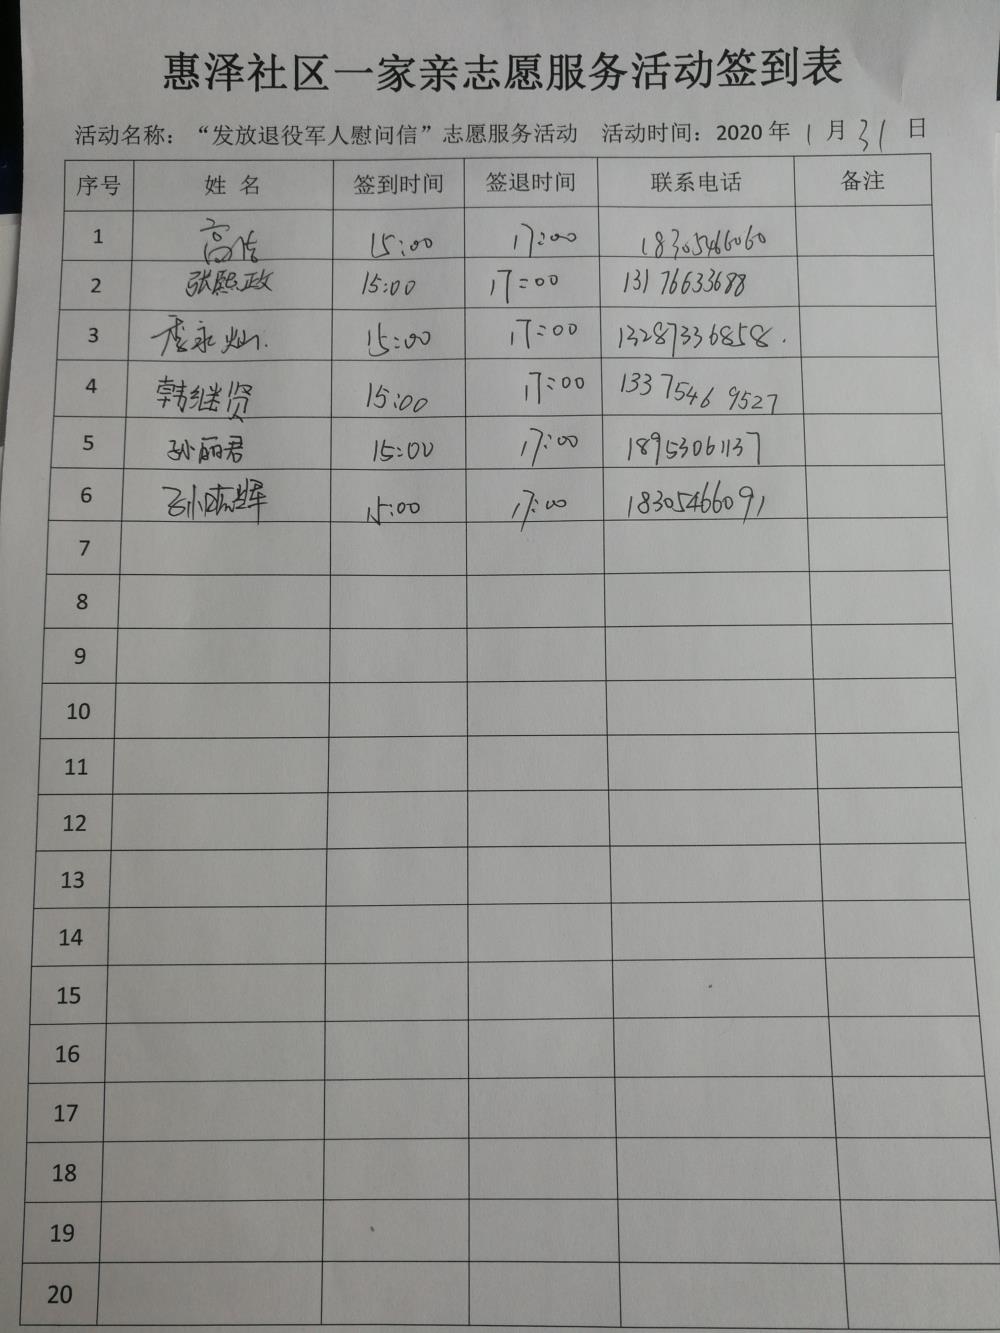 惠泽社区一家亲志愿服务活动签到表
活动名称：“发放退役军人慰问信”志愿服务活动 活动时间：2020年 1 月 31 日
序号 姓 名 签到时间 签退时间 联系电话 备注
1 高 15:00 17:00 18305466060
2 张熙政 15:00 17:00 13176633688
3 李永灿 15:00 17:00 13287336858
4 韩继贤 15:00 17:00 13375469527
5 孙丽君 15:00 17:00 18953061137
6 孙 15:00 17:00 18305466091
7
8
9
10
11
12
13
14
15
16
17
18
19
20